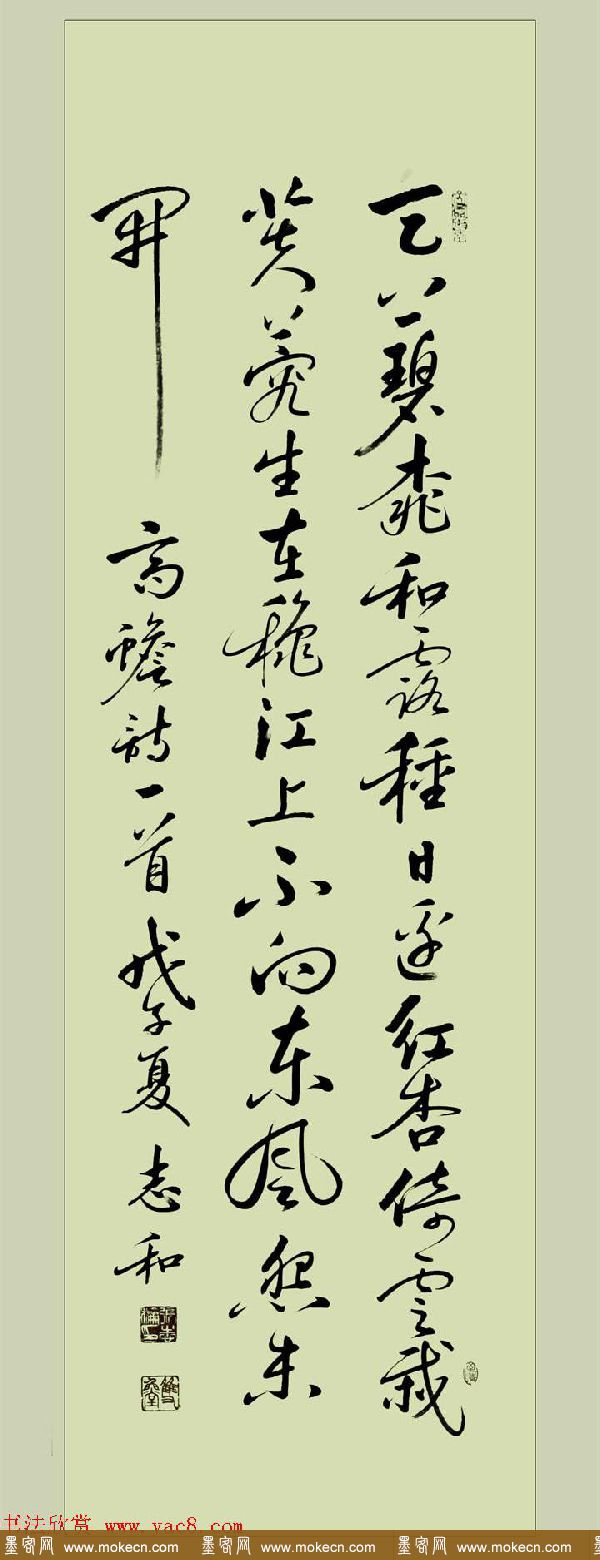 天上碧桃和露種日邊紅杏倚雲栽
芙蓉生在秋江上不向東風怨未
開 高蟾詩一首 戊午夏 志和
书法欣赏 www.yac8.com
墨客网 www.mokecn.com 墨客网 www.mokecn.com 墨客网 www.mokecn.com